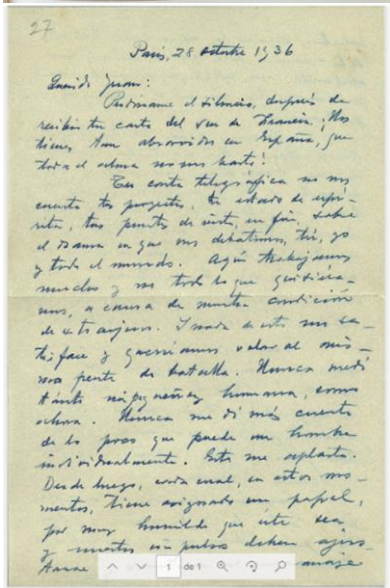 27
París, 28 octubre 1936
Querido Juan:
Perdóname el silencio, después de
recibir tu carta del sur de Francia. Nos
tienes tan absorvidos en España, que
toda el alma no nos basta!
Tu carta telegráfica no nos
cuenta tus proyectos, tu estado de espí-
ritu, tus puntos de vista, en fin, sobre
el drama en que nos debatimos, tú, yo
y todo el mundo. Aquí trabajamos
mucho y no todo lo que quisiéra-
mos, a causa de nuestra condición
de extranjeros. Y nada de esto nos sa-
tisface y querríamos volar al mis-
mo frente de batalla. Nunca medí
tanto mi pequeñez humana, como
ahora. Nunca me dí más cuenta
de lo poco que puede un hombre
individualmente. Esto me aplasta.
Desde luego, cada cual, en estos mo-
mentos, tiene asignado un papel,
por muy humilde que éste sea
y nuestros impulsos deben ajus-
tarse
1 de 1